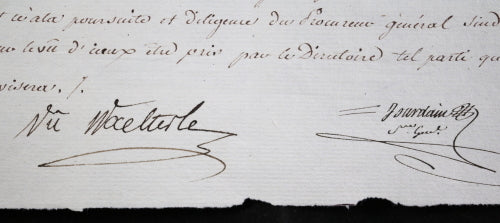 et à la poursuite et diligence du Procureur général Sind
d'iceux être pris par le Directoire tel parti qu
visera ./.
Vu Waelterlé
Jourdain